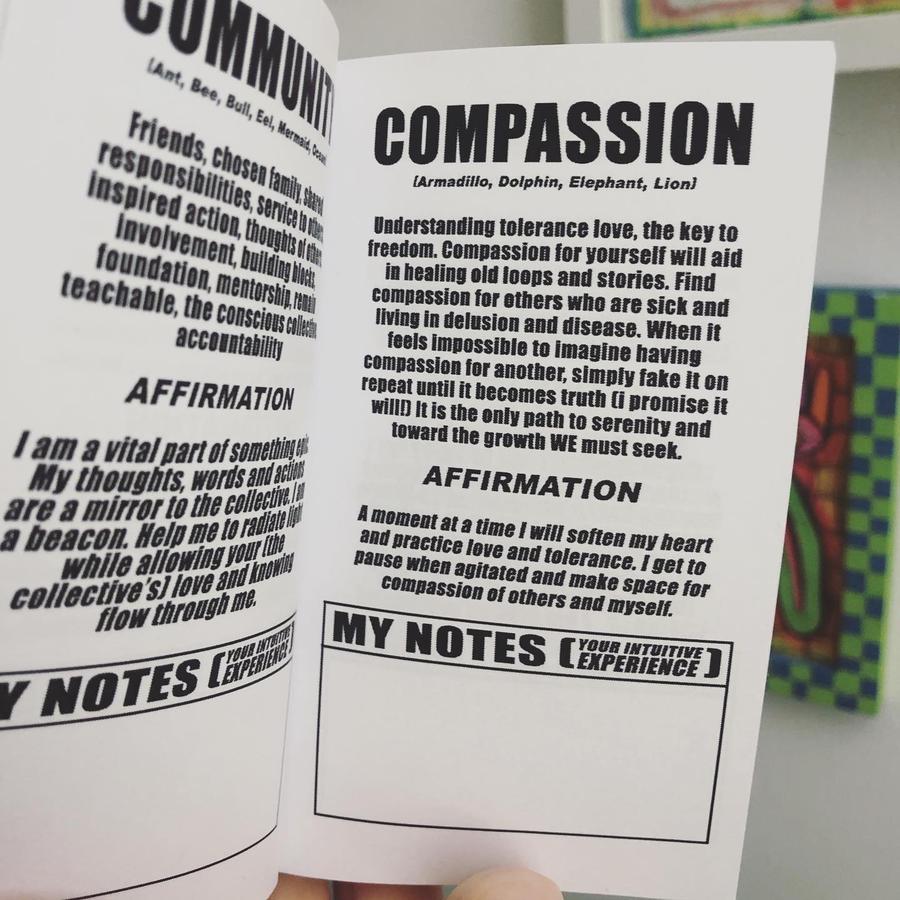 COMMUNIT
(Ant, Bee, Bull, Eel, Mermaid,
Friends, chosen family, shared
responsibilities, service to others
inspired action, thoughts of others
involvement, building blocks,
foundation, mentorship, remain
teachable, the conscious collective
accountability
AFFIRMATION
I am a vital part of something
My thoughts, words and actions
are a mirror to the collective. I am
a beacon. Help me to radiate light
while allowing your (the
collective's) love and knowing
flow through me.
Y NOTES (YOUR INTUITIVE
EXPERIENCE)
COMPASSION
(Armadillo, Dolphin, Elephant, Lion)
Understanding tolerance love, the key to
freedom. Compassion for yourself will aid
in healing old loops and stories. Find
compassion for others who are sick and
living in delusion and disease. When it
feels impossible to imagine having
compassion for another, simply fake it on
repeat until it becomes truth (i promise it
will!) It is the only path to serenity and
toward the growth WE must seek.
AFFIRMATION
A moment at a time I will soften my heart
and practice love and tolerance. I get to
pause when agitated and make space for
compassion of others and myself.
MY NOTES (YOUR INTUITIVE
EXPERIENCE)